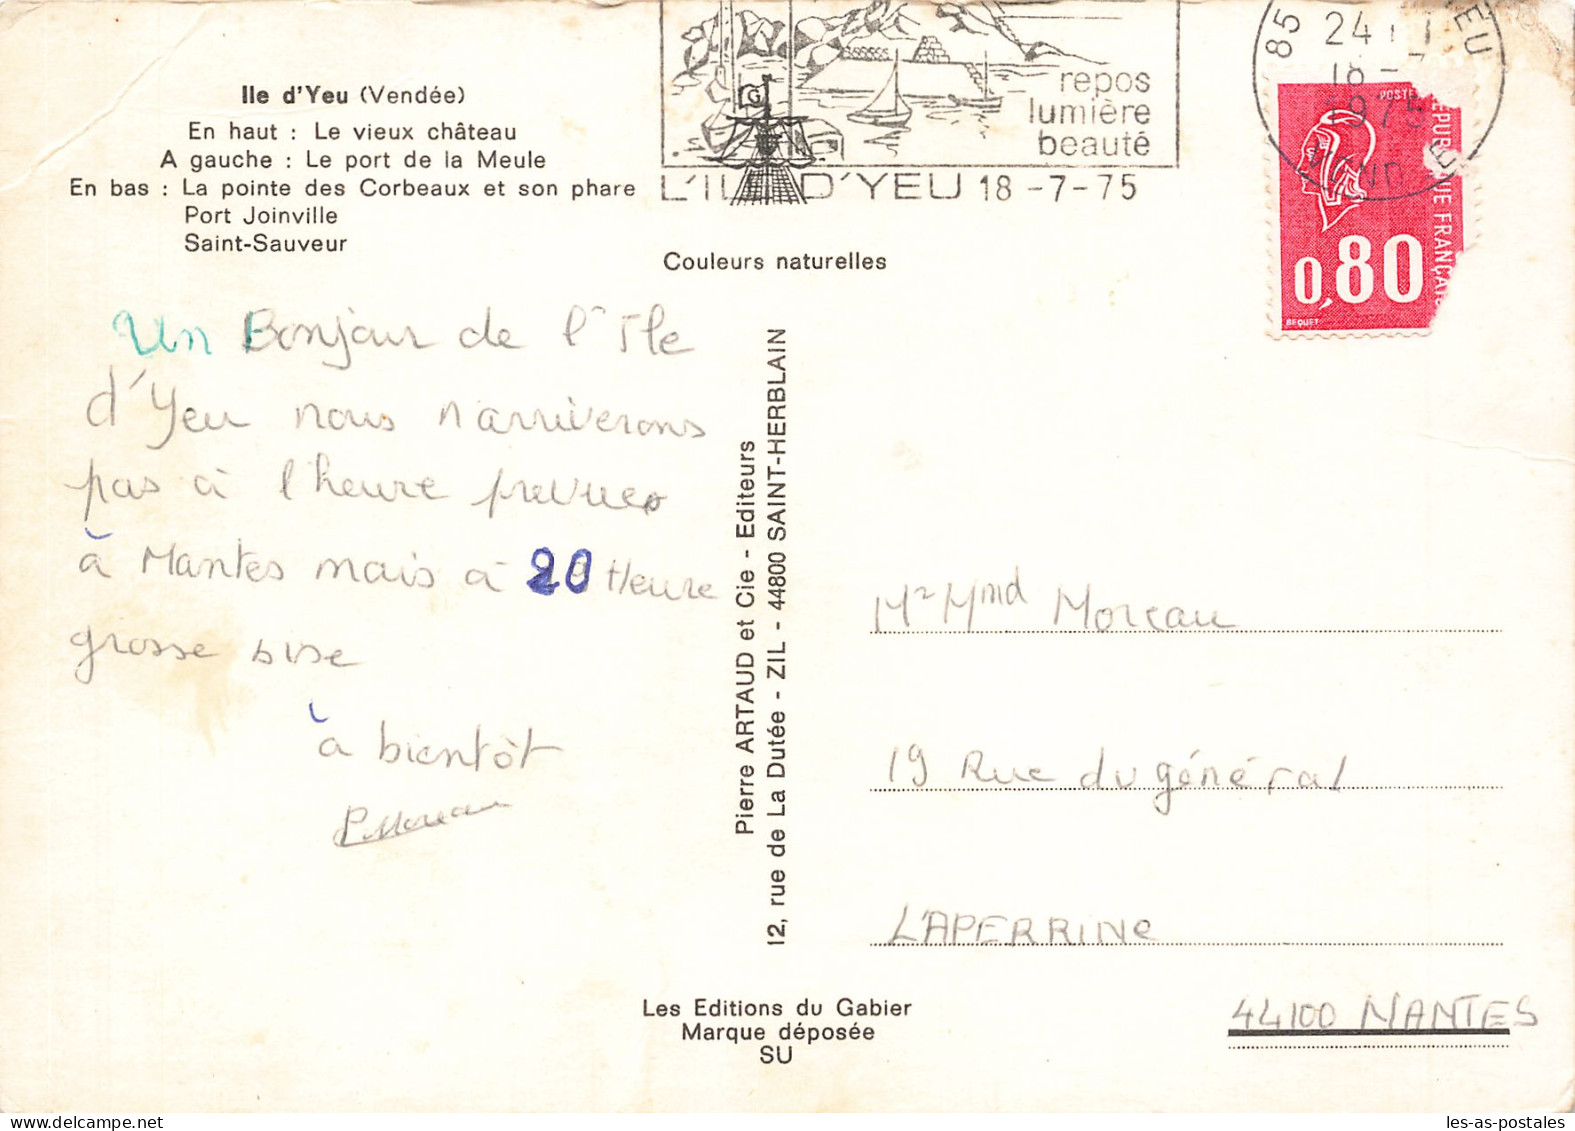 Ile d'Yeu (Vendée)
En haut : Le vieux château
A gauche : Le port de la Meule
En bas : La pointe des Corbeaux et son phare
Port Joinville
Saint-Sauveur
repos
lumière
beauté
L'ILE D'YEU 18-7-75
85 YEU
24
18-7
1975
POSTES
REPUBLIQUE FRANÇAISE
0,80
BEQUET
Couleurs naturelles
Un Bonjour de l'île
d'Yeu nous n'arriverons
pas à l'heure prevues
à Nantes mais à 20 Heure
grosse bise
à bientôt
P Moreau
Pierre ARTAUD et Cie - Editeurs
12, rue de La Dutée - ZIL - 44800 SAINT-HERBLAIN
Mr Mmd Moreau
19 Rue du général
L'APERRINE
44100 NANTES
Les Editions du Gabier
Marque déposée
SU
les-as-postales